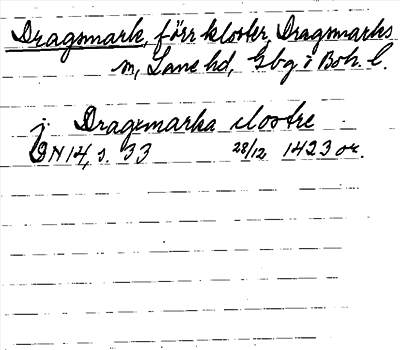 Dragsmark, förr kloster, Dragsmarks
sn, Lane hd, Gbg. o Boh. l.
j Dragxmarka clostre
GN 14, s. 33 28/12 1423 or.